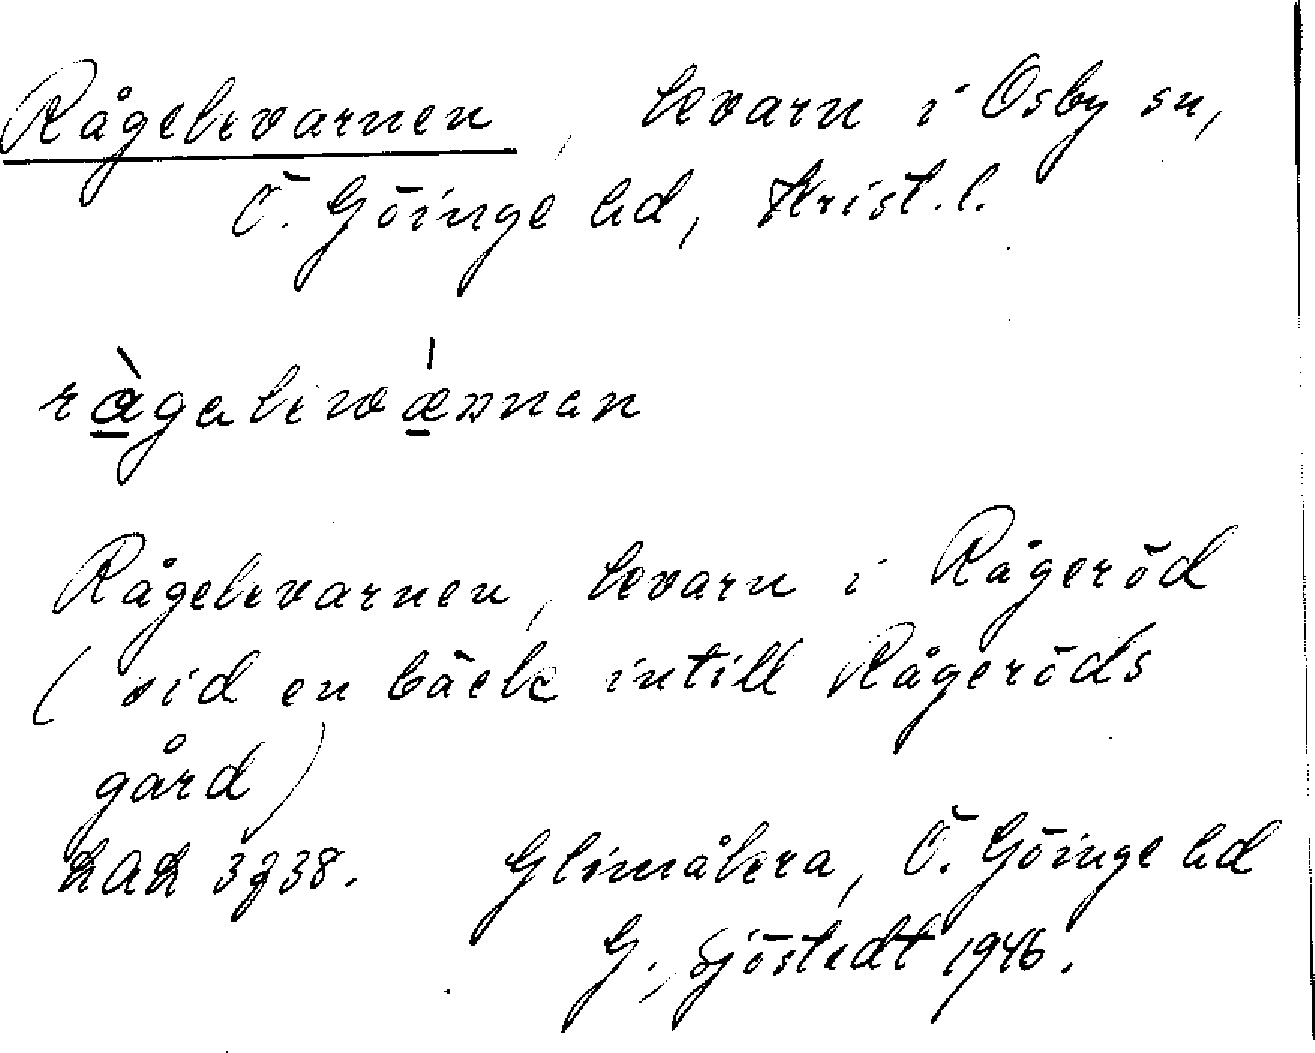 Rågekvarnen, kvarn i Osby sn,
Ö. Göinge hd, Krist. l.
Rågekvarnen, kvarn i Rågeröd
(vid en bäck intill Rågeröds
gård)
LAL 3738. Glimåkra, Ö. Göinge hd
G. Sjöstedt 1946.